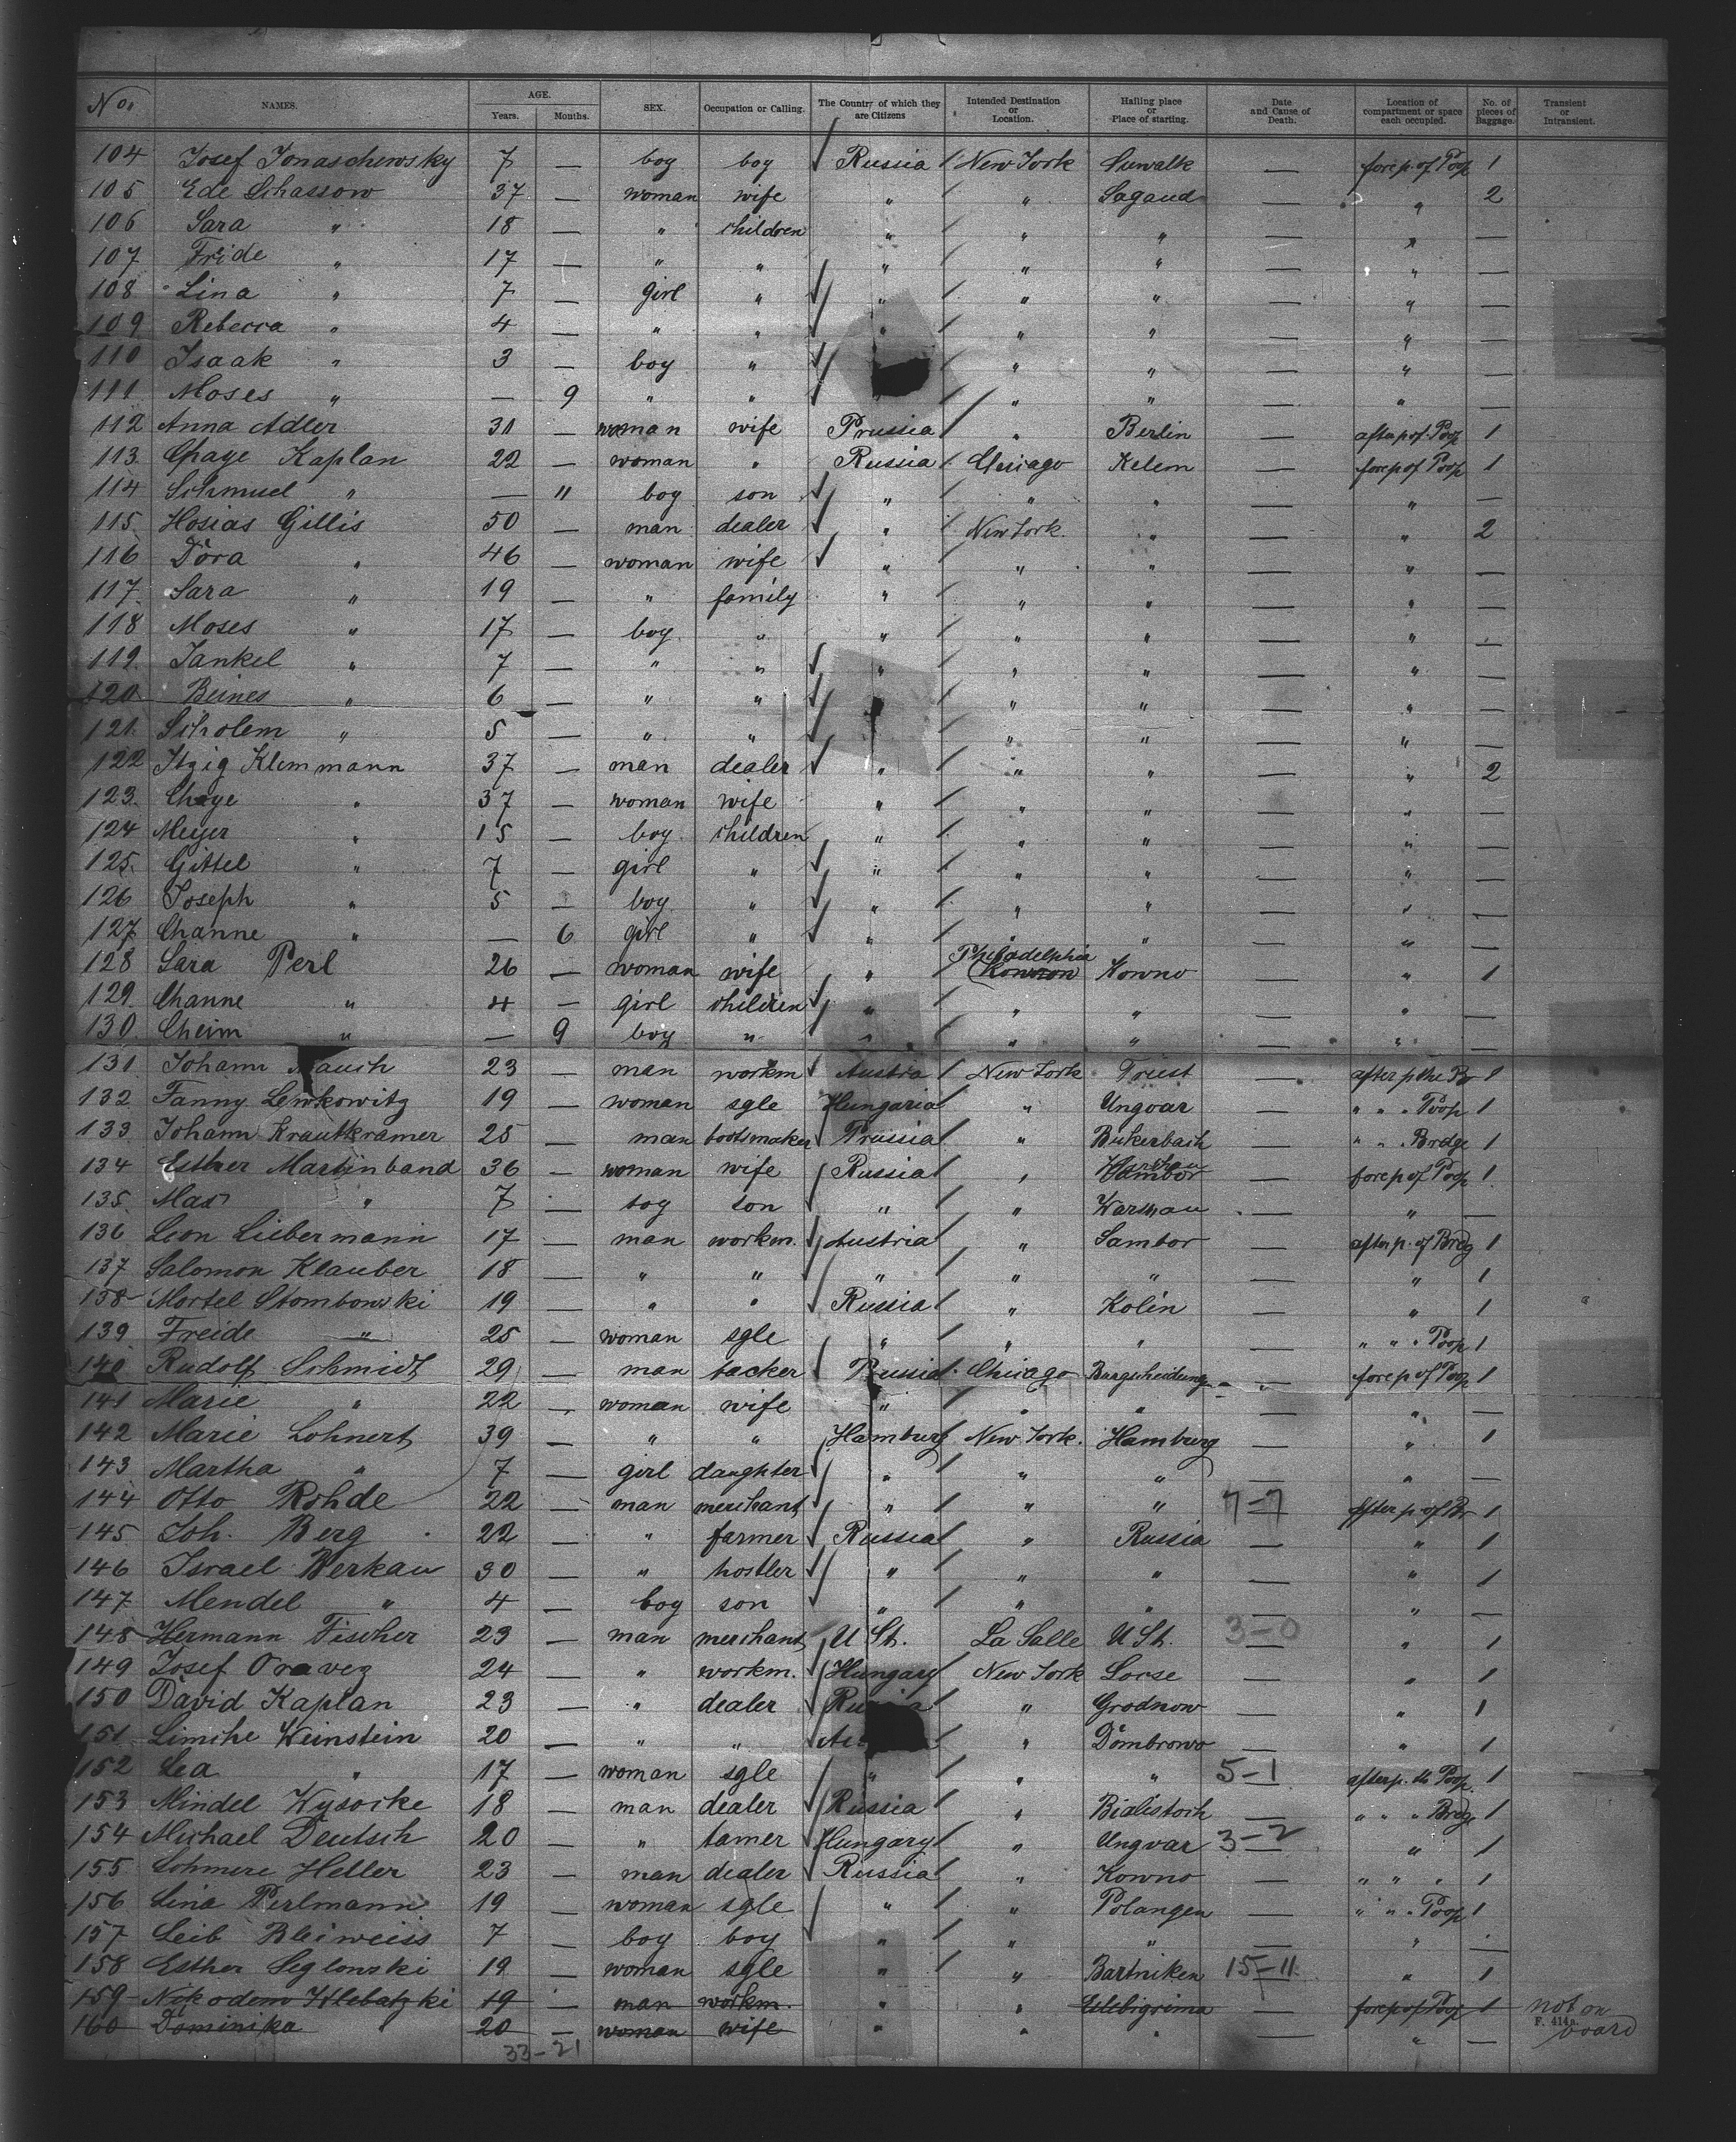 No. NAMES. AGE. Years. Months. SEX. Occupation or Calling. The Country of which they are Citizens Intended Destination or Location. Hailing place or Place of starting. Date and Cause of Death. Location of compartment or space each occupied. No. of pieces of Baggage. Transient or Intransient.
104 Josef Jonaschewsky 7 — boy boy Russia New York Suwalk — forep. of Poop 1
105 Ede Schassow 37 — woman wife " " Sagaud — " 2
106 Sara " 18 — " children " " " — " —
107 Fride " 17 — " " " " " — " —
108 Lina " 7 — girl " " " " — " —
109 Rebecca " 4 — " " " " " — " —
110 Isaak " 3 — boy " " " — " —
111 Moses " — 9 " " " " " — " —
112 Anna Adler 31 — woman wife Prussia " Berlin — afterp. of Poop 1
113 Chaye Kaplan 22 — woman " Russia Chicago Kelem — forep of Poop 1
114 Schmuel " — 11 boy son " " " — " —
115 Hosias Gillis 50 — man dealer " New York. " — " 2
116 Dora " 46 — woman wife " " " — " —
117 Sara " 19 — " family " " " — " —
118 Moses " 17 — boy " " " " — " —
119 Jankel " 7 — " " " " " — " —
120 Beines " 6 — " " " " — " —
121 Scholem " 5 — " " " " — " —
122 Itzig Klemmann 37 — man dealer " " " — " 2
123 Chaye " 37 — woman wife " " " — " —
124 Meyer " 15 — boy children " " " — " —
125 Gittel " 7 — girl " " " " — " —
126 Joseph " 5 — boy " " " " — " —
127 Channe " — 6 girl " " " " — " —
128 Sara Perl 26 — woman wife " Philadelphia Kowno — " 1
129 Channe " 4 — girl children " " " — " —
130 Cheim " — 9 boy " " " " — " —
131 Johann 23 — man workm Austria New York Triest — after p the Br 1
132 Fanny Lewkowitz 19 — woman sgle Hungaria " Ungvar — " " " Poop 1
133 Johann Krautkramer 25 — man bootsmaker Prussia " Bukerbach — " " " Bredge 1
134 Esther Martinband 36 — woman wife Russia " Warschau — forep of Poop 1
135 Max " 7 — boy son " " Warschau — " —
136 Leon Liebermann 17 — man workm. Austria " Sambor — afterp. of Bredg 1
137 Salomon Klauber 18 — " " " " " — " 1
138 Mortel Stombowski 19 — " " Russia " Kolin — " 1
139 Freide " 25 — woman sgle " " " — " " " Poop 1
140 Rudolf Schmidt 29 — man backer Prussia Chicago Burgscheidungen — forep of Poop 1
141 Marie " 22 — woman wife " " " — " —
142 Marie Lohnert 39 — " " Hamburg New York. Hamburg — " 1
143 Martha " 7 — girl daughter " " " — " —
144 Otto Rohde 22 — man merchant " " " 7-7 after p of Br 1
145 Joh. Berg 22 — " farmer Russia " Russia — " 1
146 Israel Berkau 30 — " hostler " " " — " 1
147 Mendel " 4 — boy son " " " — " —
148 Hermann Fischer 23 — man merchant U St. La Salle U St. 3-0 " 1
149 Josef Oravez 24 — " workm. Hungary New York Locse — " 1
150 David Kaplan 23 — " dealer Russia " Grodnow — " 1
151 Limche Weinstein 20 — " " " Dombrowo — " 1
152 Lea " 17 — woman sgle " " " 5-1 afterp. th Poop. 1
153 Mindel Wysocke 18 — man dealer Russia " Bialistoch — " " " Bredge 1
154 Michael Deutsch 20 — " tamer Hungary " Ungvar 3-2 " 1
155 Schmere Heller 23 — man dealer Russia " Kowno — " " " 1
156 Lina Perlmann 19 — woman sgle " " Polangen — " " " Poop 1
157 Leib Bleiweiss 7 — boy boy " " " — " —
158 Esther Seglowski 19 — woman sgle " " Bartniken 15-11 " 1
159 Nikodem Wlebatzki 19 — man workm. " " — forep of Poop 1 not on
160 Dominika 20 — woman wife " " " — " — board
F. 414a.
33-21